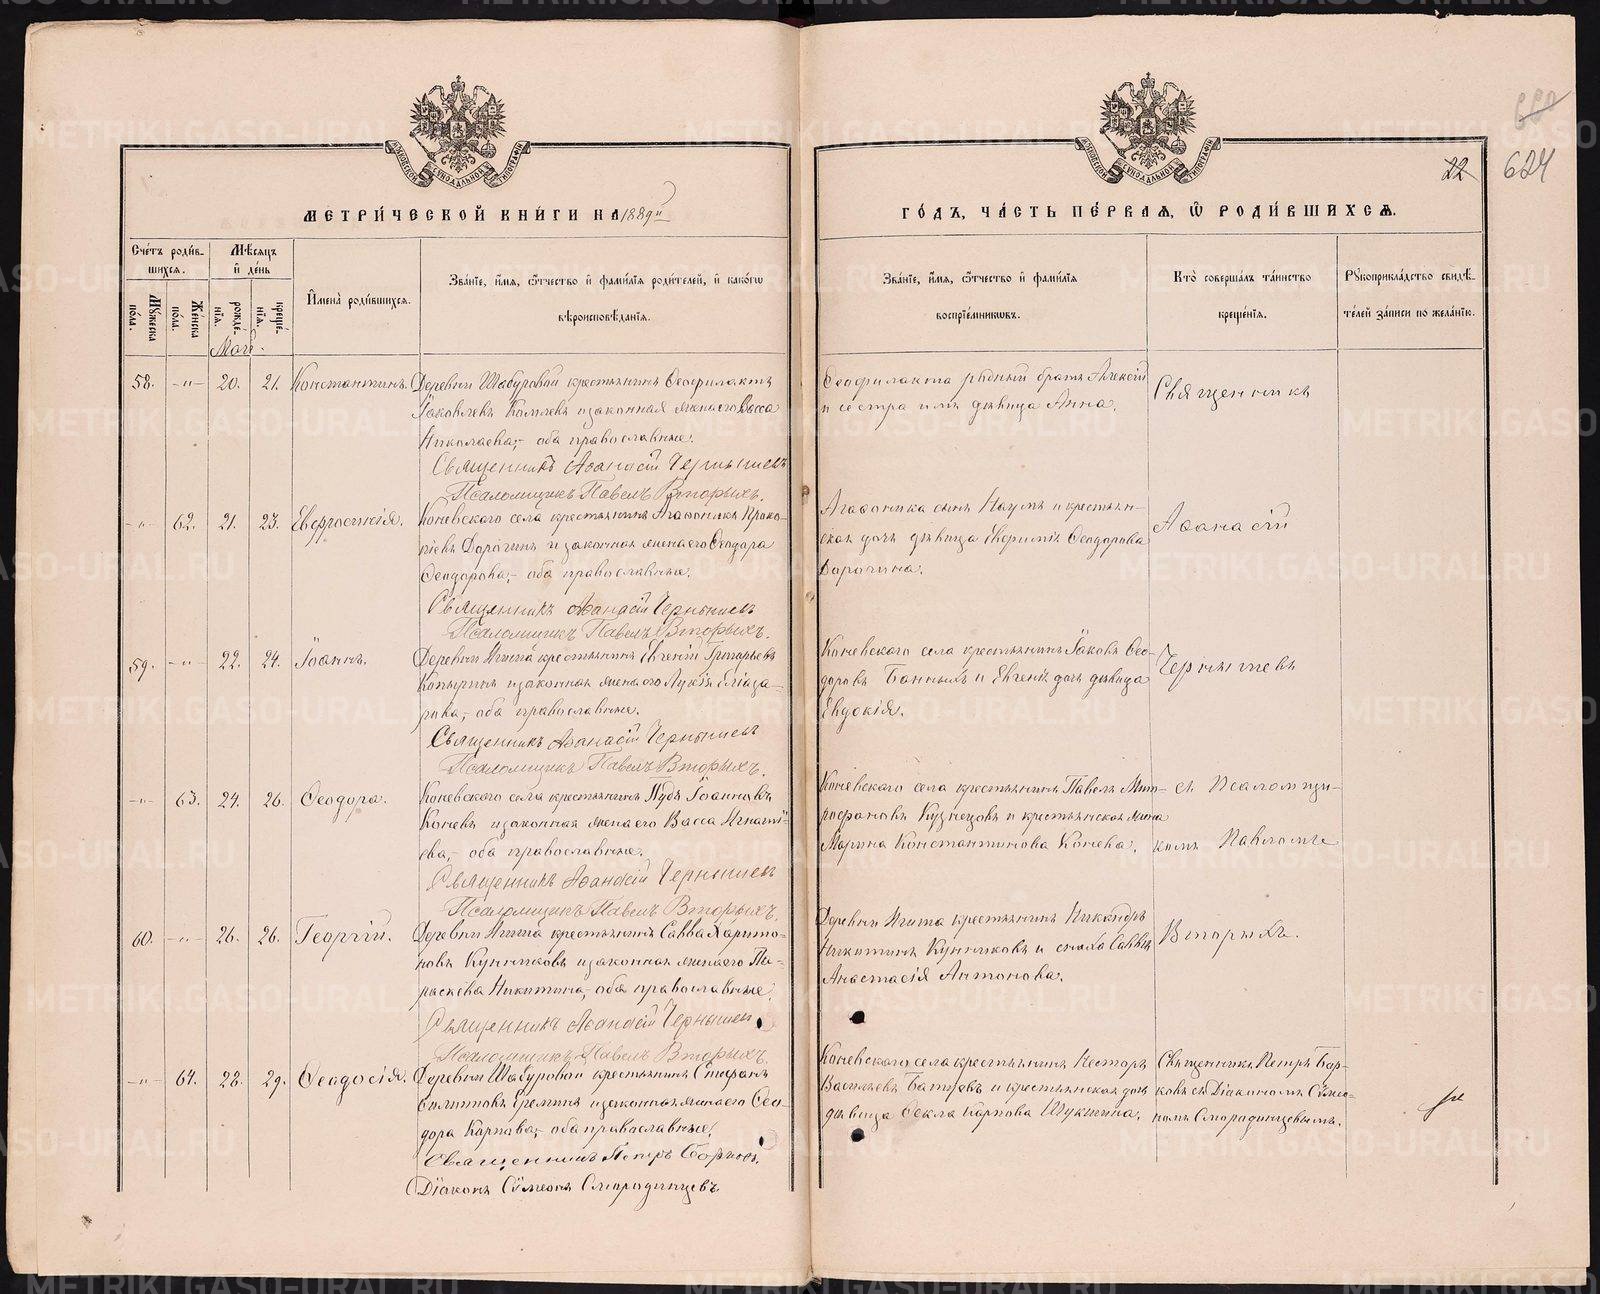 МЕТРИ́ЧЕСКОЙ КНИ́ГИ НА 1889й
ГО́ДЪ, ЧА́СТЬ ПЕ́РВАЯ, Ѡ҆ РОДИ́ВШИХСЯ.
22
624
Сче́тъ роди́в-
шихся.
Мѣ́сяцъ
и҆ де́нь
Мꙋ́жеска по́ла.
Же́нска по́ла.
рожде́нїя.
креще́нїя.
И҆мена̀ роди́вшихся.
Зва́нїе, и҆́мя, ѻ҆́тчество и҆ фами́лїя роди́телей, и҆ како́гѡ
вѣроисповѣ́данїя.
Зва́нїе, и҆́мя, ѻ҆́тчество и҆ фами́лїя
воспрїе́мникѡвъ.
Кто̀ соверша́лъ та́инство
креще́нїя.
Рꙋкоприкла́дство свидѣ́-
телей за́писи по жела́нїю.
Май.
58. -"- 20. 21. Константинъ.
Деревни Шабуровой крестьянинъ Ѳеофилактъ
Іаковлевъ Комлевъ и законная жена его Васса
Николаева,- оба православные.
Священникъ Аѳанасій Чернышевъ
Псаломщикъ Павелъ Вторыхъ.
Ѳеофилакта родный братъ Алексій
и сестра имъ дѣвица Анна.
Священникъ
-"- 62. 21. 23. Евфросинія.
Коневского села крестьянинъ Агаѳоникъ Проко-
піевъ Дорогинъ и законная жена его Ѳеодора
Ѳеодорова,- оба православные.
Священникъ Аѳанасій Чернышевъ
Псаломщикъ Павелъ Вторыхъ.
Агаѳоника сынъ Наумъ и крестьян-
ская дочь дѣвица Ѳеодорова
Дорогина.
Аѳанасій
59. -"- 22. 24. Іоаннъ.
Деревни Игиша крестьянинъ Евгеній Григорьевъ
Копыринъ и законная жена его Лукія Еліаза-
рова,- оба православные.
Священникъ Аѳанасій Чернышевъ
Псаломщикъ Павелъ Вторыхъ.
Коневского села крестьянинъ Іаковъ Ѳео-
доровъ Банныхъ и Евгенія дочь дѣвица
Евдокія.
Чернышевъ
-"- 63. 24. 26. Ѳеодора.
Коневского села крестьянинъ Іоанновъ
Коневъ и законная жена его Васса Игнатіе-
ева,- оба православные.
Священникъ Аѳанасій Чернышевъ
Псаломщикъ Павелъ Вторыхъ.
Коневского села крестьянинъ Павелъ Мит-
рофановъ Кузнецовъ и крестьянская жена
Марина Константинова Конева.
съ Псаломщи-
комъ Павломъ
60. -"- 26. 26. Георгій.
Деревни Игиша крестьянинъ Савва Харито-
новъ Кунниковъ и законная жена его Па-
раскева Никитина,- оба православные.
Священникъ Аѳанасій Чернышевъ
Псаломщикъ Павелъ Вторыхъ.
Деревни Игиша крестьянинъ Никандръ
Никитинъ Кунниковъ и сноха Саввы
Анастасія Антонова.
Вторыхъ.
-"- 64. 28. 29. Ѳеодосія.
Деревни Шабуровой крестьянинъ Стефанъ
Филипповъ Ереминъ и законная жена его Ѳео-
дора Карпова,- оба православные.
Священникъ Петръ
Діаконъ Сѵмеонъ Смородинцевъ.
Коневского села крестьянинъ Несторъ
Васильевъ и крестьянская дочь
дѣвица Ѳекла Карпова Шукшина.
Священникъ Петръ
съ Діакономъ Сѵмео-
номъ Смородинцевымъ.
METRIKI.GASO-URAL.RU